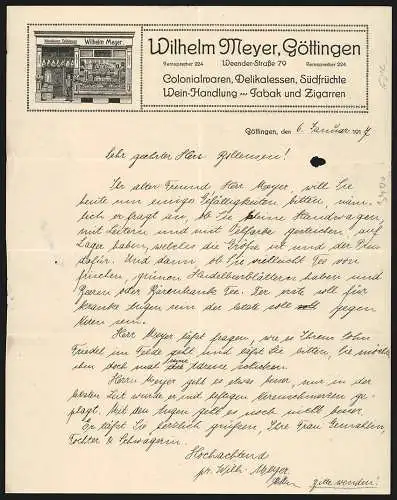 Wilhelm Meyer
Wilhelm Meyer, Göttingen
Fernsprecher 224 Weender-Straße 79 Fernsprecher 224
Colonialwaren, Delikatessen, Südfrüchte
Wein-Handlung Tabak und Zigarren
Göttingen, den 6. Januar 1917
Sehr geehrter Herr !
Ihr alter Freund Herr Meyer, will Sie
heute um einige Gefälligkeiten bitten, näm-
lich er fragt an, ob Sie kleine Handwagen,
mit Leitern und mit Ölfarbe gestrichen, auf
Lager haben, welches die Größe ist und der Preis
dafür. Und dann ob Sie vielleicht Tee von
frischen, grünen Heidelbeerblättern haben und
Beeren oder Tee. Der erste soll für
kranke Augen sein der letzte soll gegen
sein.
Herr Meyer läßt fragen, wie es Ihrem Sohn
Friedel im Felde geht und läßt Sie bitten, Sie möch-
ten doch mal seine Adresse schicken.
Herrn Meyer geht es etwas besser, nur in der
letzten Zeit wurde er mit heftigen geplagt.
Mit den Augen geht es noch nicht besser.
Er läßt Sie herzlich grüßen, Ihre Frau Gemahlin,
Tochter & Schwägerin.
Hochachtend
pr. Wilh. Meyer.
bitte wenden!